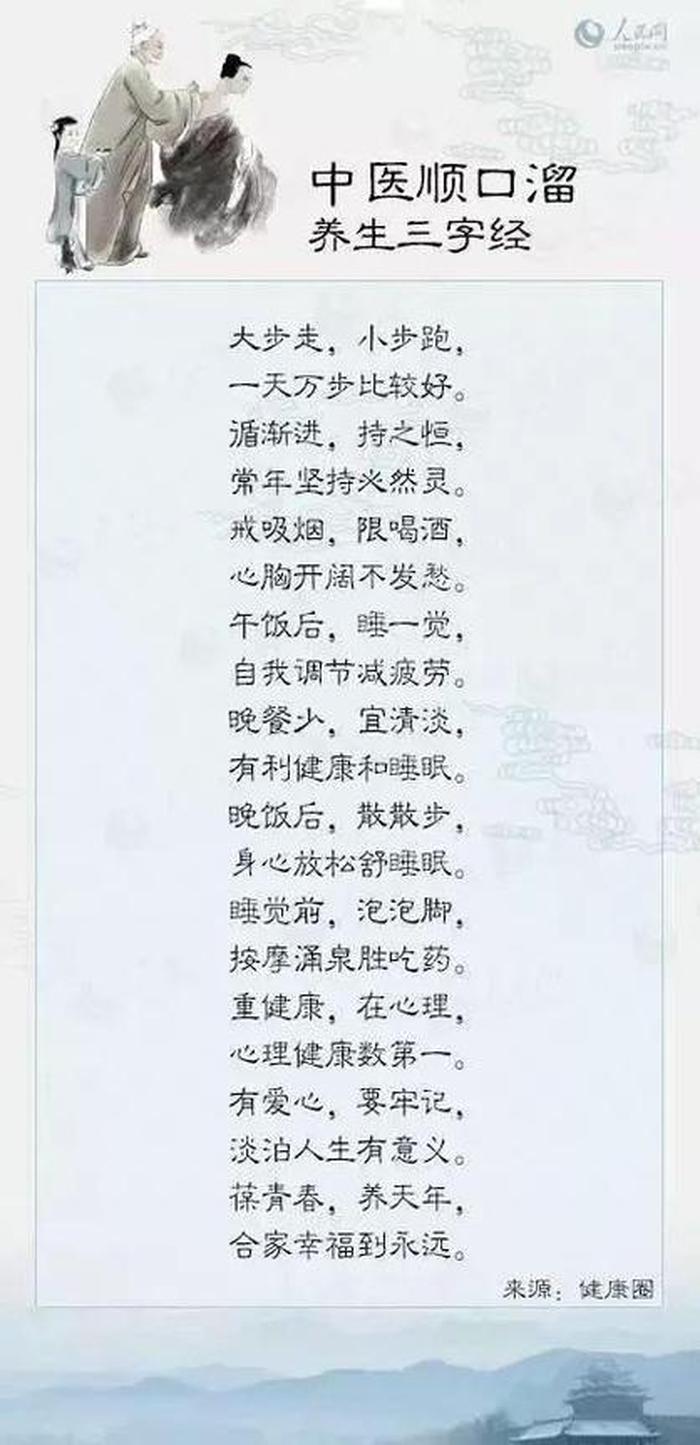 人民网
people.cn
中医顺口溜
养生三字经
大步走，小步跑，
一天万步比较好。
循渐进，持之恒，
常年坚持必然灵。
戒吸烟，限喝酒，
心胸开阔不发愁。
午饭后，睡一觉，
自我调节减疲劳。
晚餐少，宜清淡，
有利健康和睡眠。
晚饭后，散散步，
身心放松舒睡眠。
睡觉前，泡泡脚，
按摩涌泉胜吃药。
重健康，在心理，
心理健康数第一。
有爱心，要牢记，
淡泊人生有意义。
葆青春，养天年，
合家幸福到永远。
来源：健康圈